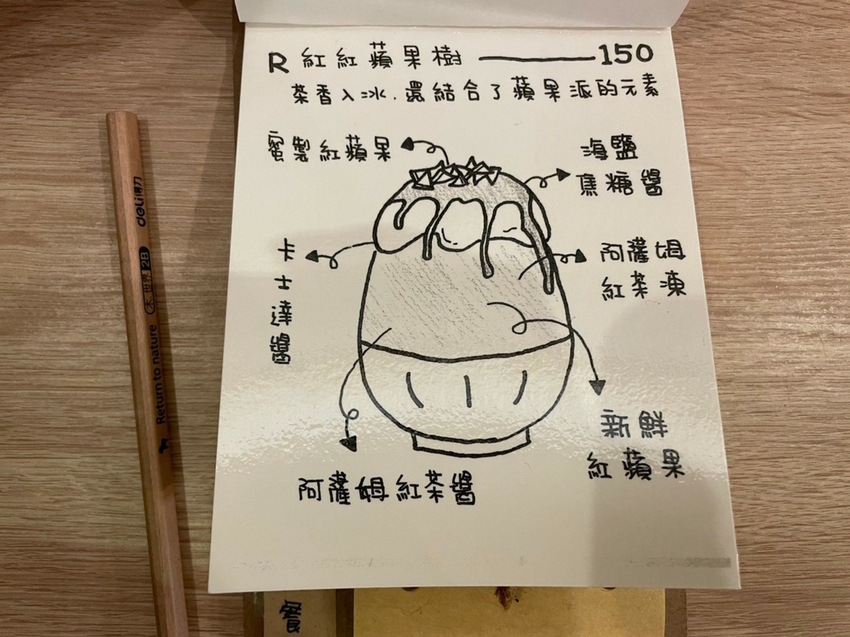 R 紅紅蘋果樹 ——— 150
茶香入冰.還結合了蘋果派的元素
蜜製紅蘋果
海鹽
焦糖醬
卡士達醬
阿薩姆
紅茶凍
新鮮
紅蘋果
阿薩姆紅茶醬
餐
deli 得力
2B
Return to nature